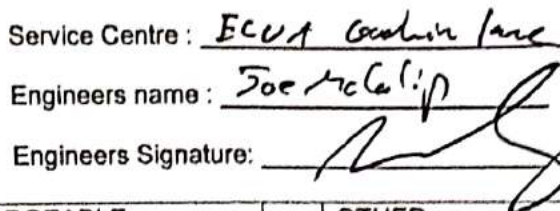 Service Centre : ECUA Goodwin lane
Engineers name : Joe McCalip
Engineers Signature:
OTHER